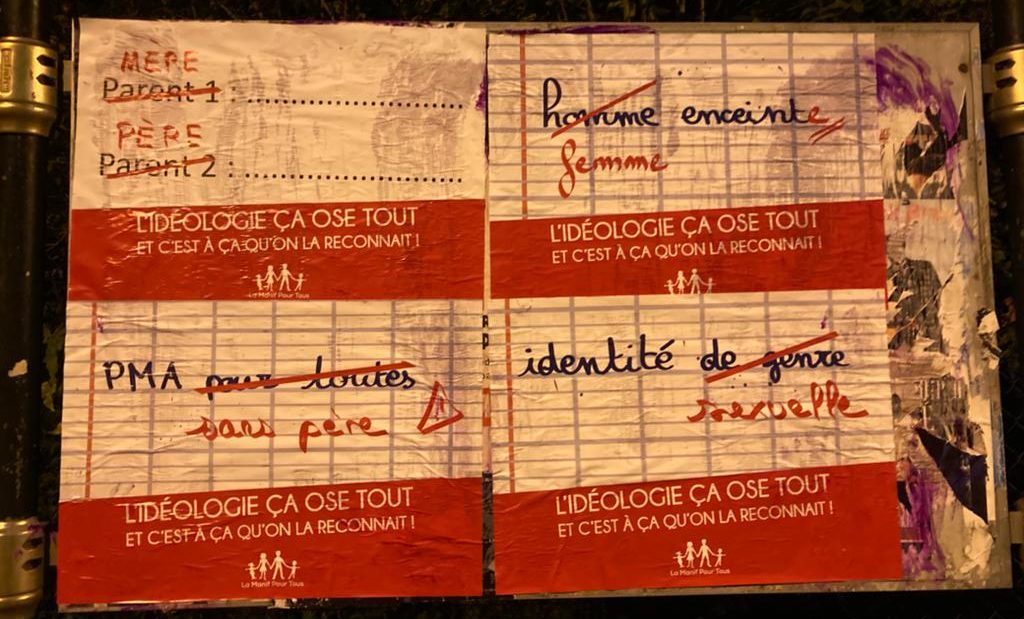 MERE
Parent 1 : ........................................
PÈRE
Parent 2 : ........................................
L'IDÉOLOGIE ÇA OSE TOUT
ET C'EST À ÇA QU'ON LA RECONNAIT !
La Manif Pour Tous
homme enceinte
femme
L'IDÉOLOGIE ÇA OSE TOUT
ET C'EST À ÇA QU'ON LA RECONNAIT !
PMA pour toutes
sans père
L'IDÉOLOGIE ÇA OSE TOUT
ET C'EST À ÇA QU'ON LA RECONNAIT !
La Manif Pour Tous
identité de genre
sexuelle
L'IDÉOLOGIE ÇA OSE TOUT
ET C'EST À ÇA QU'ON LA RECONNAIT !
La Manif Pour Tous